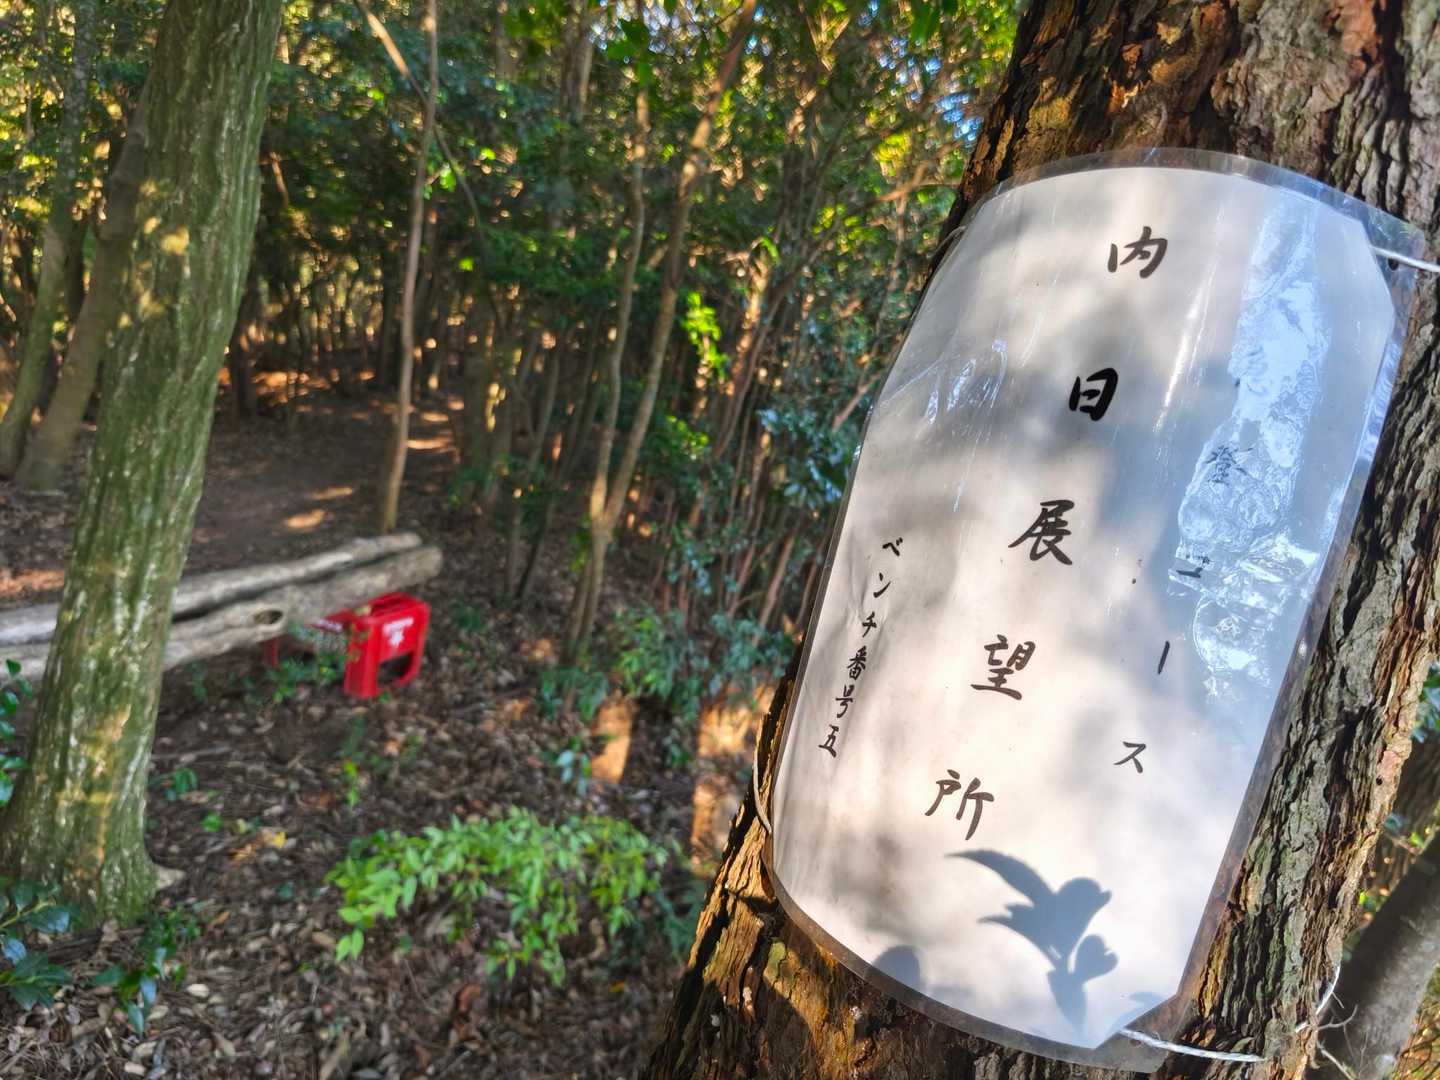 登コース
内日展望所
ベンチ番号五